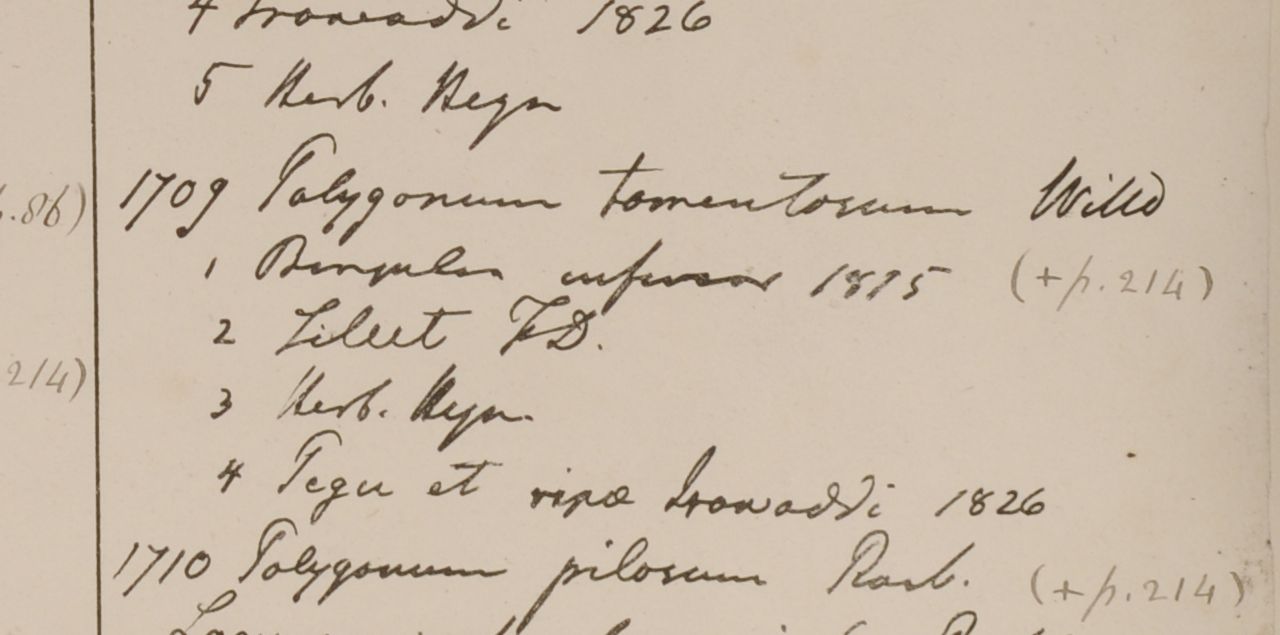 4 Irowaddi 1826
5 Herb. Heyn
.86) 1709 Polygonum tomentosum Willd
1 Bengulia inferior 1815 (+p.214)
2 Silhet FD.
214) 3 Herb. Heyn.
4 Pegu et ripæ Irowaddi 1826
1710 Polygonum pilosum Roxb. (+p.214)